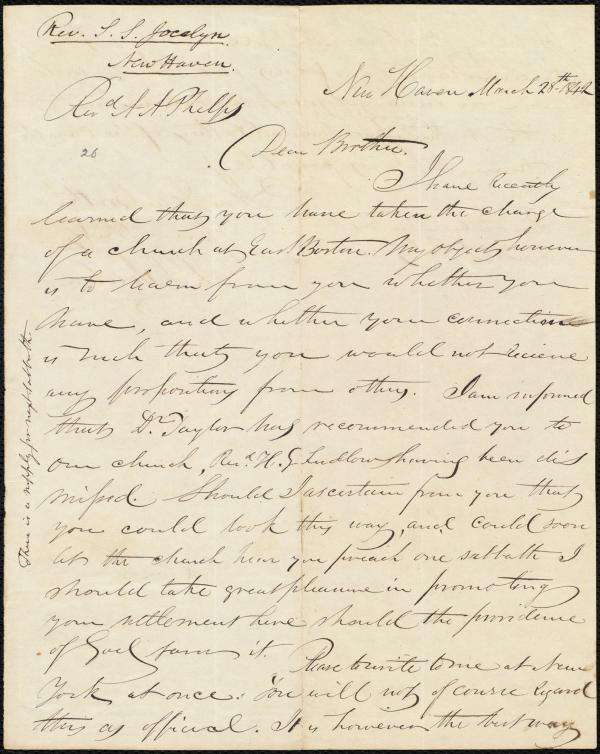 Rev. S. S. Jocelyn.
New Haven.
New Haven March 28th 1842
Revd A A Phelps
26
Dear Brother.
I have recently
learned that you have taken the charge
of a church at East Boston. My object however
is to learn from you whether you
have, and whether your connection
is such that you would not receive
any propositions from others. I am informed
that Dr. Taylor has recommended you to
our church, Revd. H. G. Ludlow having been dis
missed. Should I ascertain from you that
you could look this way, and could soon
let the church hear you preach one sabbath I
should take great pleasure in promoting
your settlement here should the providence
of God favor it. Please to write to me at New
York at once. You will not of course regard
this as official. It is however the best way
There is a supply for next sabbath.